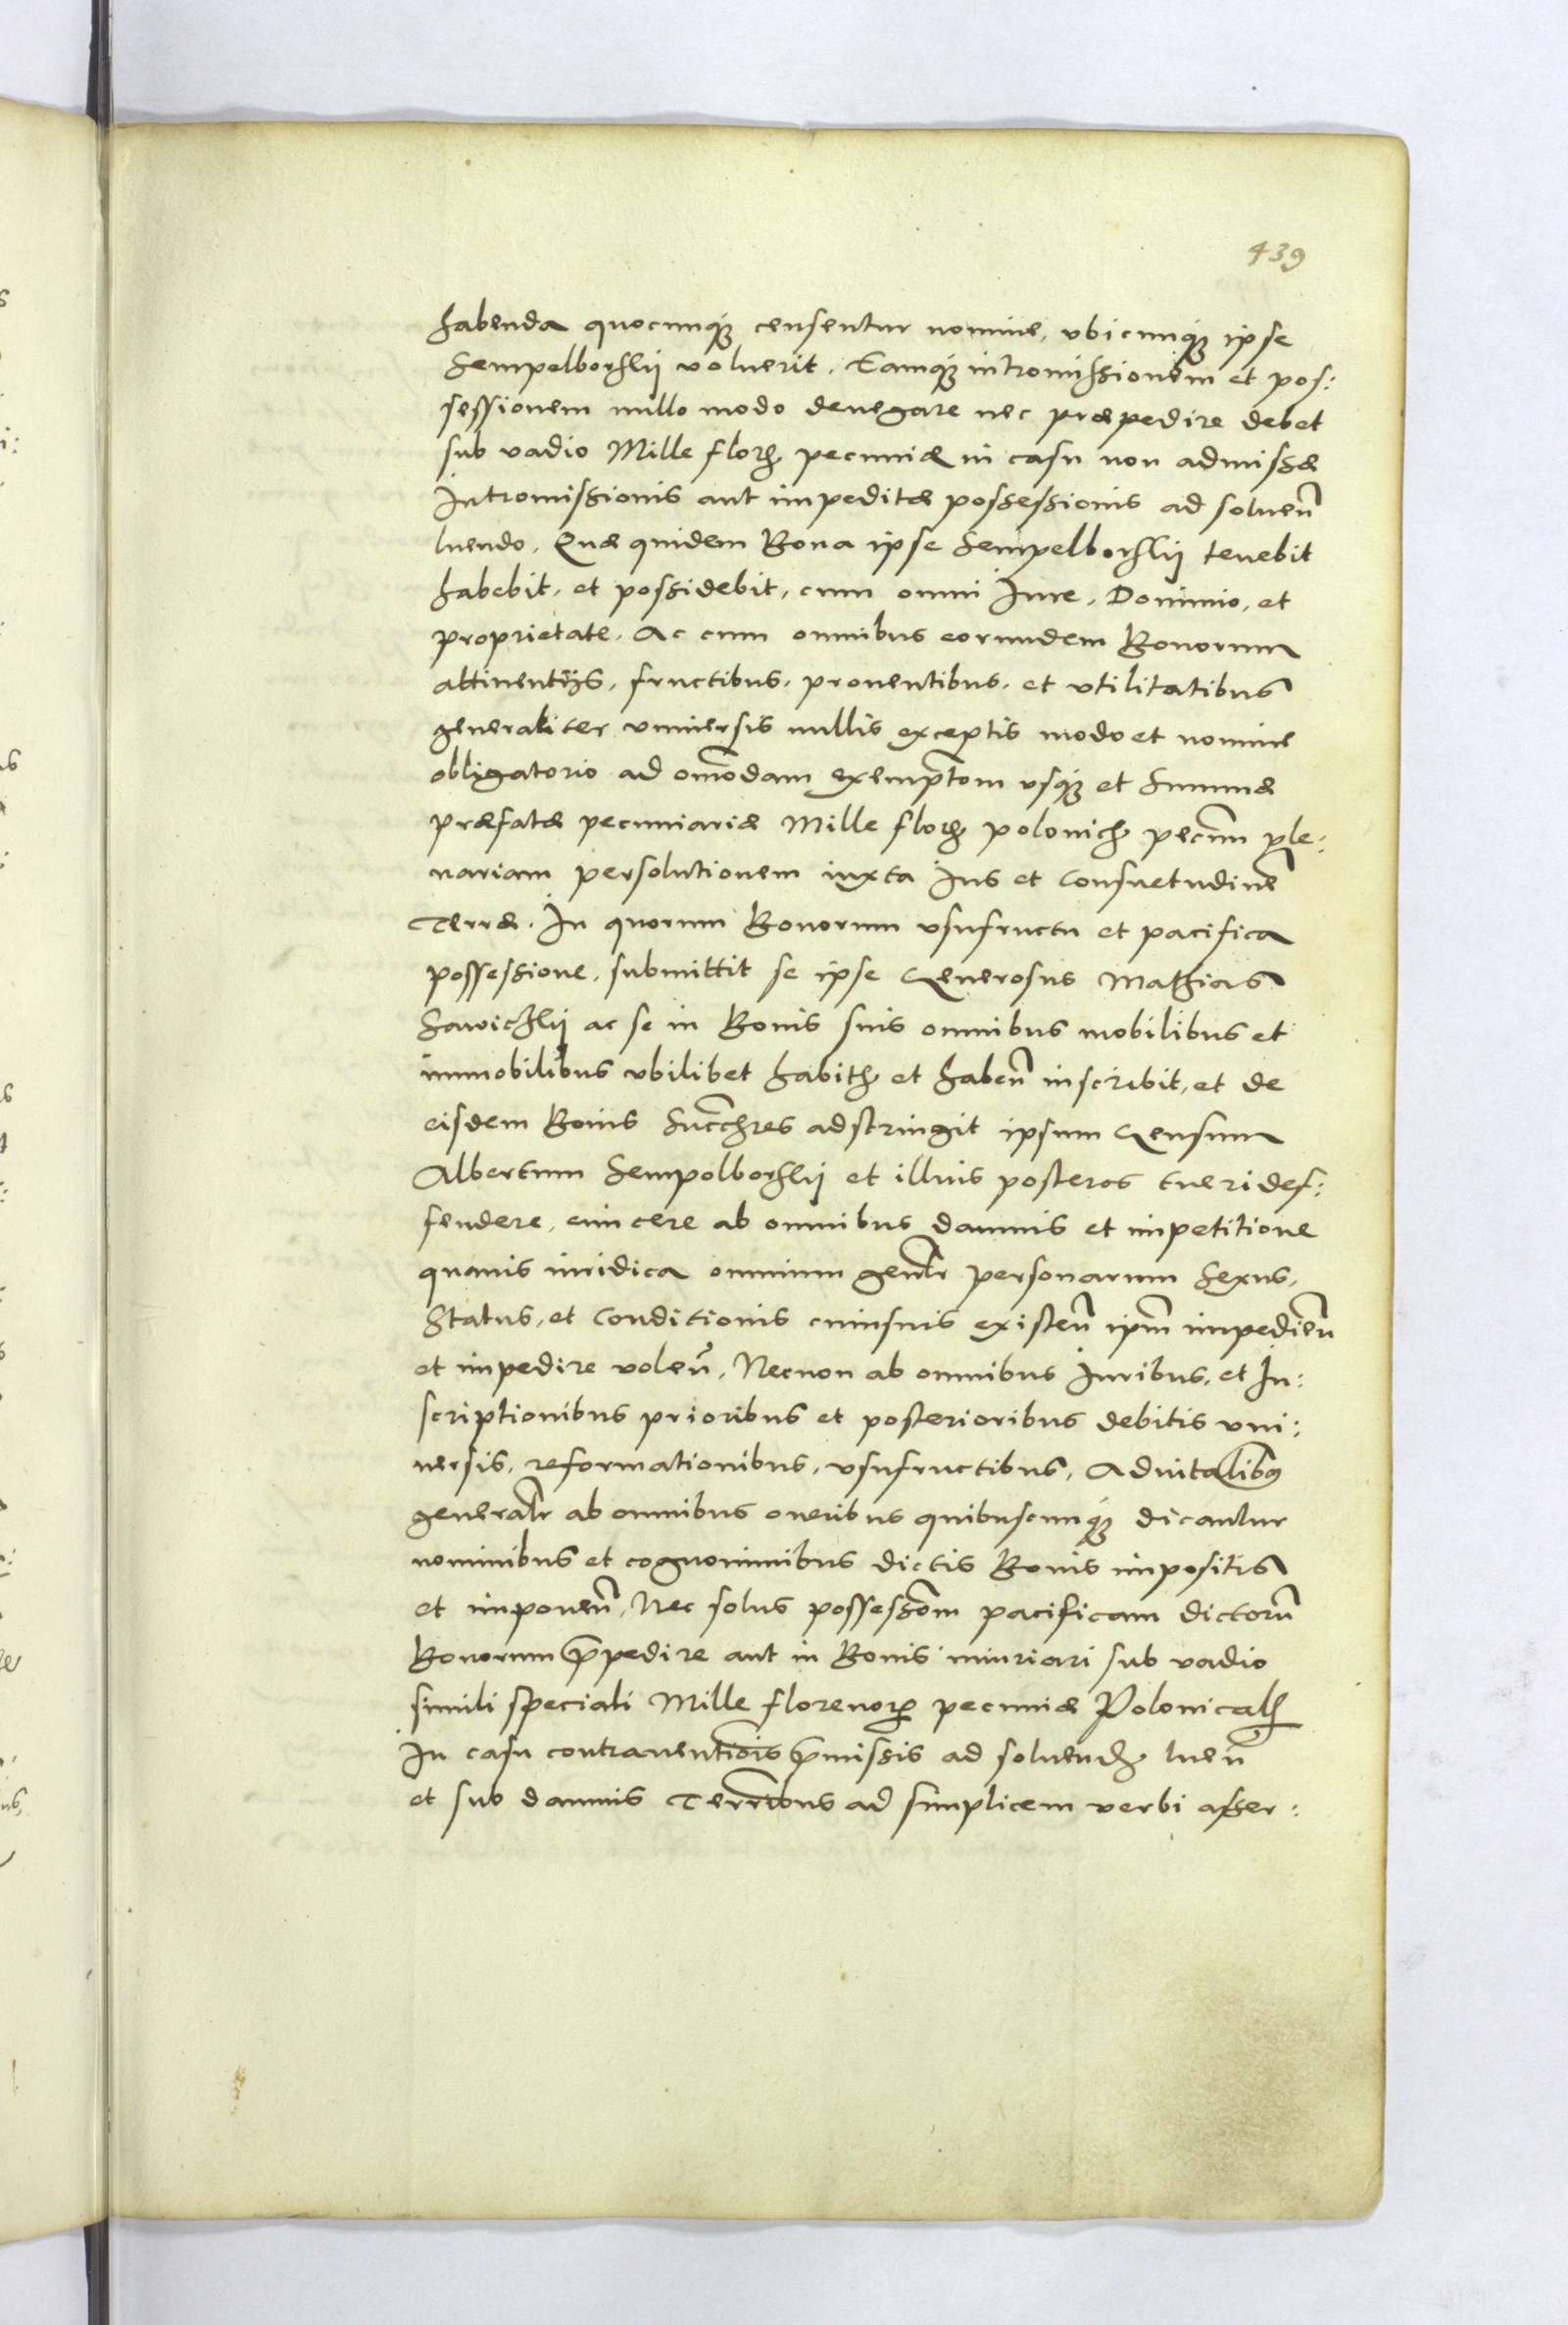 439
habenda quocunq; censentur nomine, vbicunq; ipse
Sempelborskij voluerit. Eamq; intromissionem et pos:
sessionem nullo modo denegare nec præpedire debet
sub vadio Mille flor. pecuniæ in casu non admissæ
Intromissionis aut impeditæ possessionis ad soluen̄
luendo. Quæ quidem Bona ipse Sempelborskij tenebit
habebit, et possidebit, cum omni Iure, Dominio, et
proprietate. Ac cum omnibus eorundem Bonorum
attinentijs, fructibus, prouentibus, et vtilitatibus
generaliter vniuersis nullis exceptis modo et nomine
obligatorio ad om̄odam exempt̄om vsq; et Summæ
præfatæ pecuniariæ Mille flor. polonich. pecun̄ ple:
nariam persolutionem iuxta Ius et Consuetudinē
Terræ. In quorum Bonorum vsufructu et pacifica
possessione, submittit se ipse Generosus Mathias
Sawiczkij ac se in Bonis suis omnibus mobilibus et
immobilibus vbilibet habith. et haben̄ inscribit, et de
eisdem Bonis Succ̄hres adstringit ipsum Gensum
Albertum Sempolborskij et illius posteros tueri def:
fendere, euincere ab omnibus damnis et impetitione
quauis iuridica omnium genlr̄ personarum Sexus,
Status, et Conditionis cuiusuis existen̄ ipm̄ impedien̄
et impedire volen̄. Necnon ab omnibus Iuribus, et In:
scriptionibus prioribus et posterioribus debitis vni:
uersis, reformationibus, vsufructibus, Aduitalibus
generalr̄ ab omnibus oneribus quibuscunq; dicantur
nominibus et cognominibus dictis Bonis impositis
et imponen̄, Nec solus possess̄om pacificam dictorū
Bonorum p̄pedire aut in Bonis iniuriari sub vadio
simili speciali Mille florenor. pecuniæ Polonicalis
In casu contrauentiōis p̄missis ad soluend. luen̄
et sub damnis Terr̄ibus ad simplicem verbi asser: